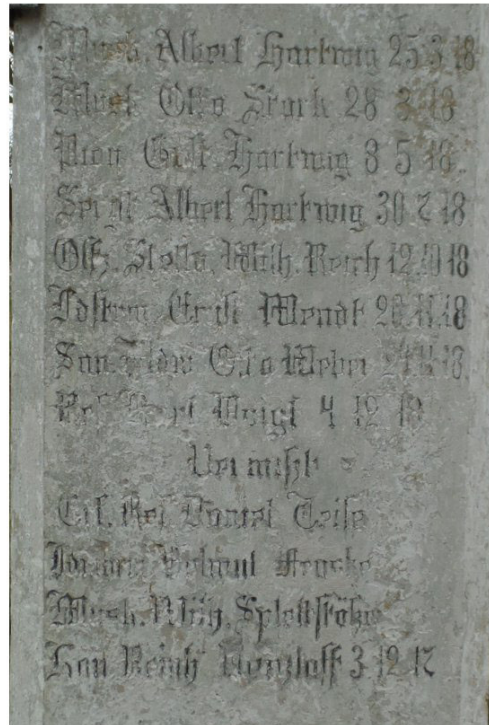 Musk. Albert Hartwig 25 3 18
Musk. Otto Stark 28 3 18
Pion Gust. Hartwig 8 5 18.
Sergt Albert Hartwig 30 7 18
Offz. Stellv. Wilh. Reich 12.10 18
Ldstrm. Ernst Wendt 20.11.18
Otto Weber 18.
Res. Karl Voigt 4 12 18
Vermißt
Ers. Res Daniel
Musk. Wilh. Splettstößer
Kan Reinh 3 12 17